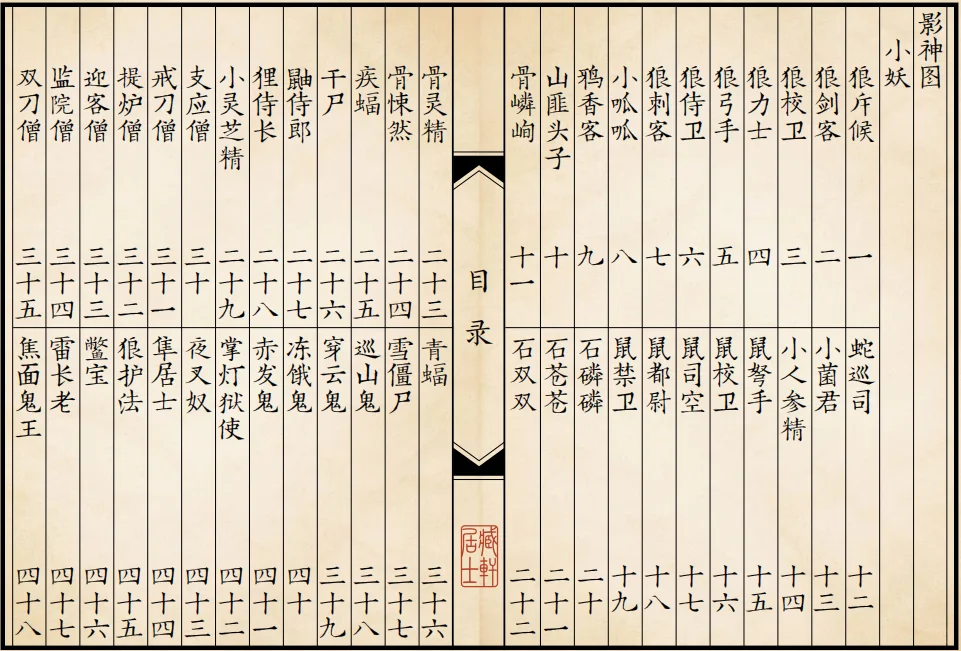 影神图
小妖
狼斥候 一
狼剑客 二
狼校卫 三
狼力士 四
狼弓手 五
狼侍卫 六
狼刺客 七
小呱呱 八
鸦香客 九
山匪头子 十
骨嶙峋 十一
蛇巡司 十二
小菌君 十三
小人参精 十四
鼠弩手 十五
鼠校卫 十六
鼠司空 十七
鼠都尉 十八
鼠禁卫 十九
石磷磷 二十
石苍苍 二十一
石双双 二十二
目录
藏軒
居士
骨灵精 二十三
骨悚然 二十四
疾蝠 二十五
干尸 二十六
鼬侍郎 二十七
狸侍长 二十八
小灵芝精 二十九
支应僧 三十
戒刀僧 三十一
提炉僧 三十二
迎客僧 三十三
监院僧 三十四
双刀僧 三十五
青蝠 三十六
雪僵尸 三十七
巡山鬼 三十八
穿云鬼 三十九
冻饿鬼 四十
赤发鬼 四十一
掌灯狱使 四十二
夜叉奴 四十三
隼居士 四十四
狼护法 四十五
鳖宝 四十六
雷长老 四十七
焦面鬼王 四十八